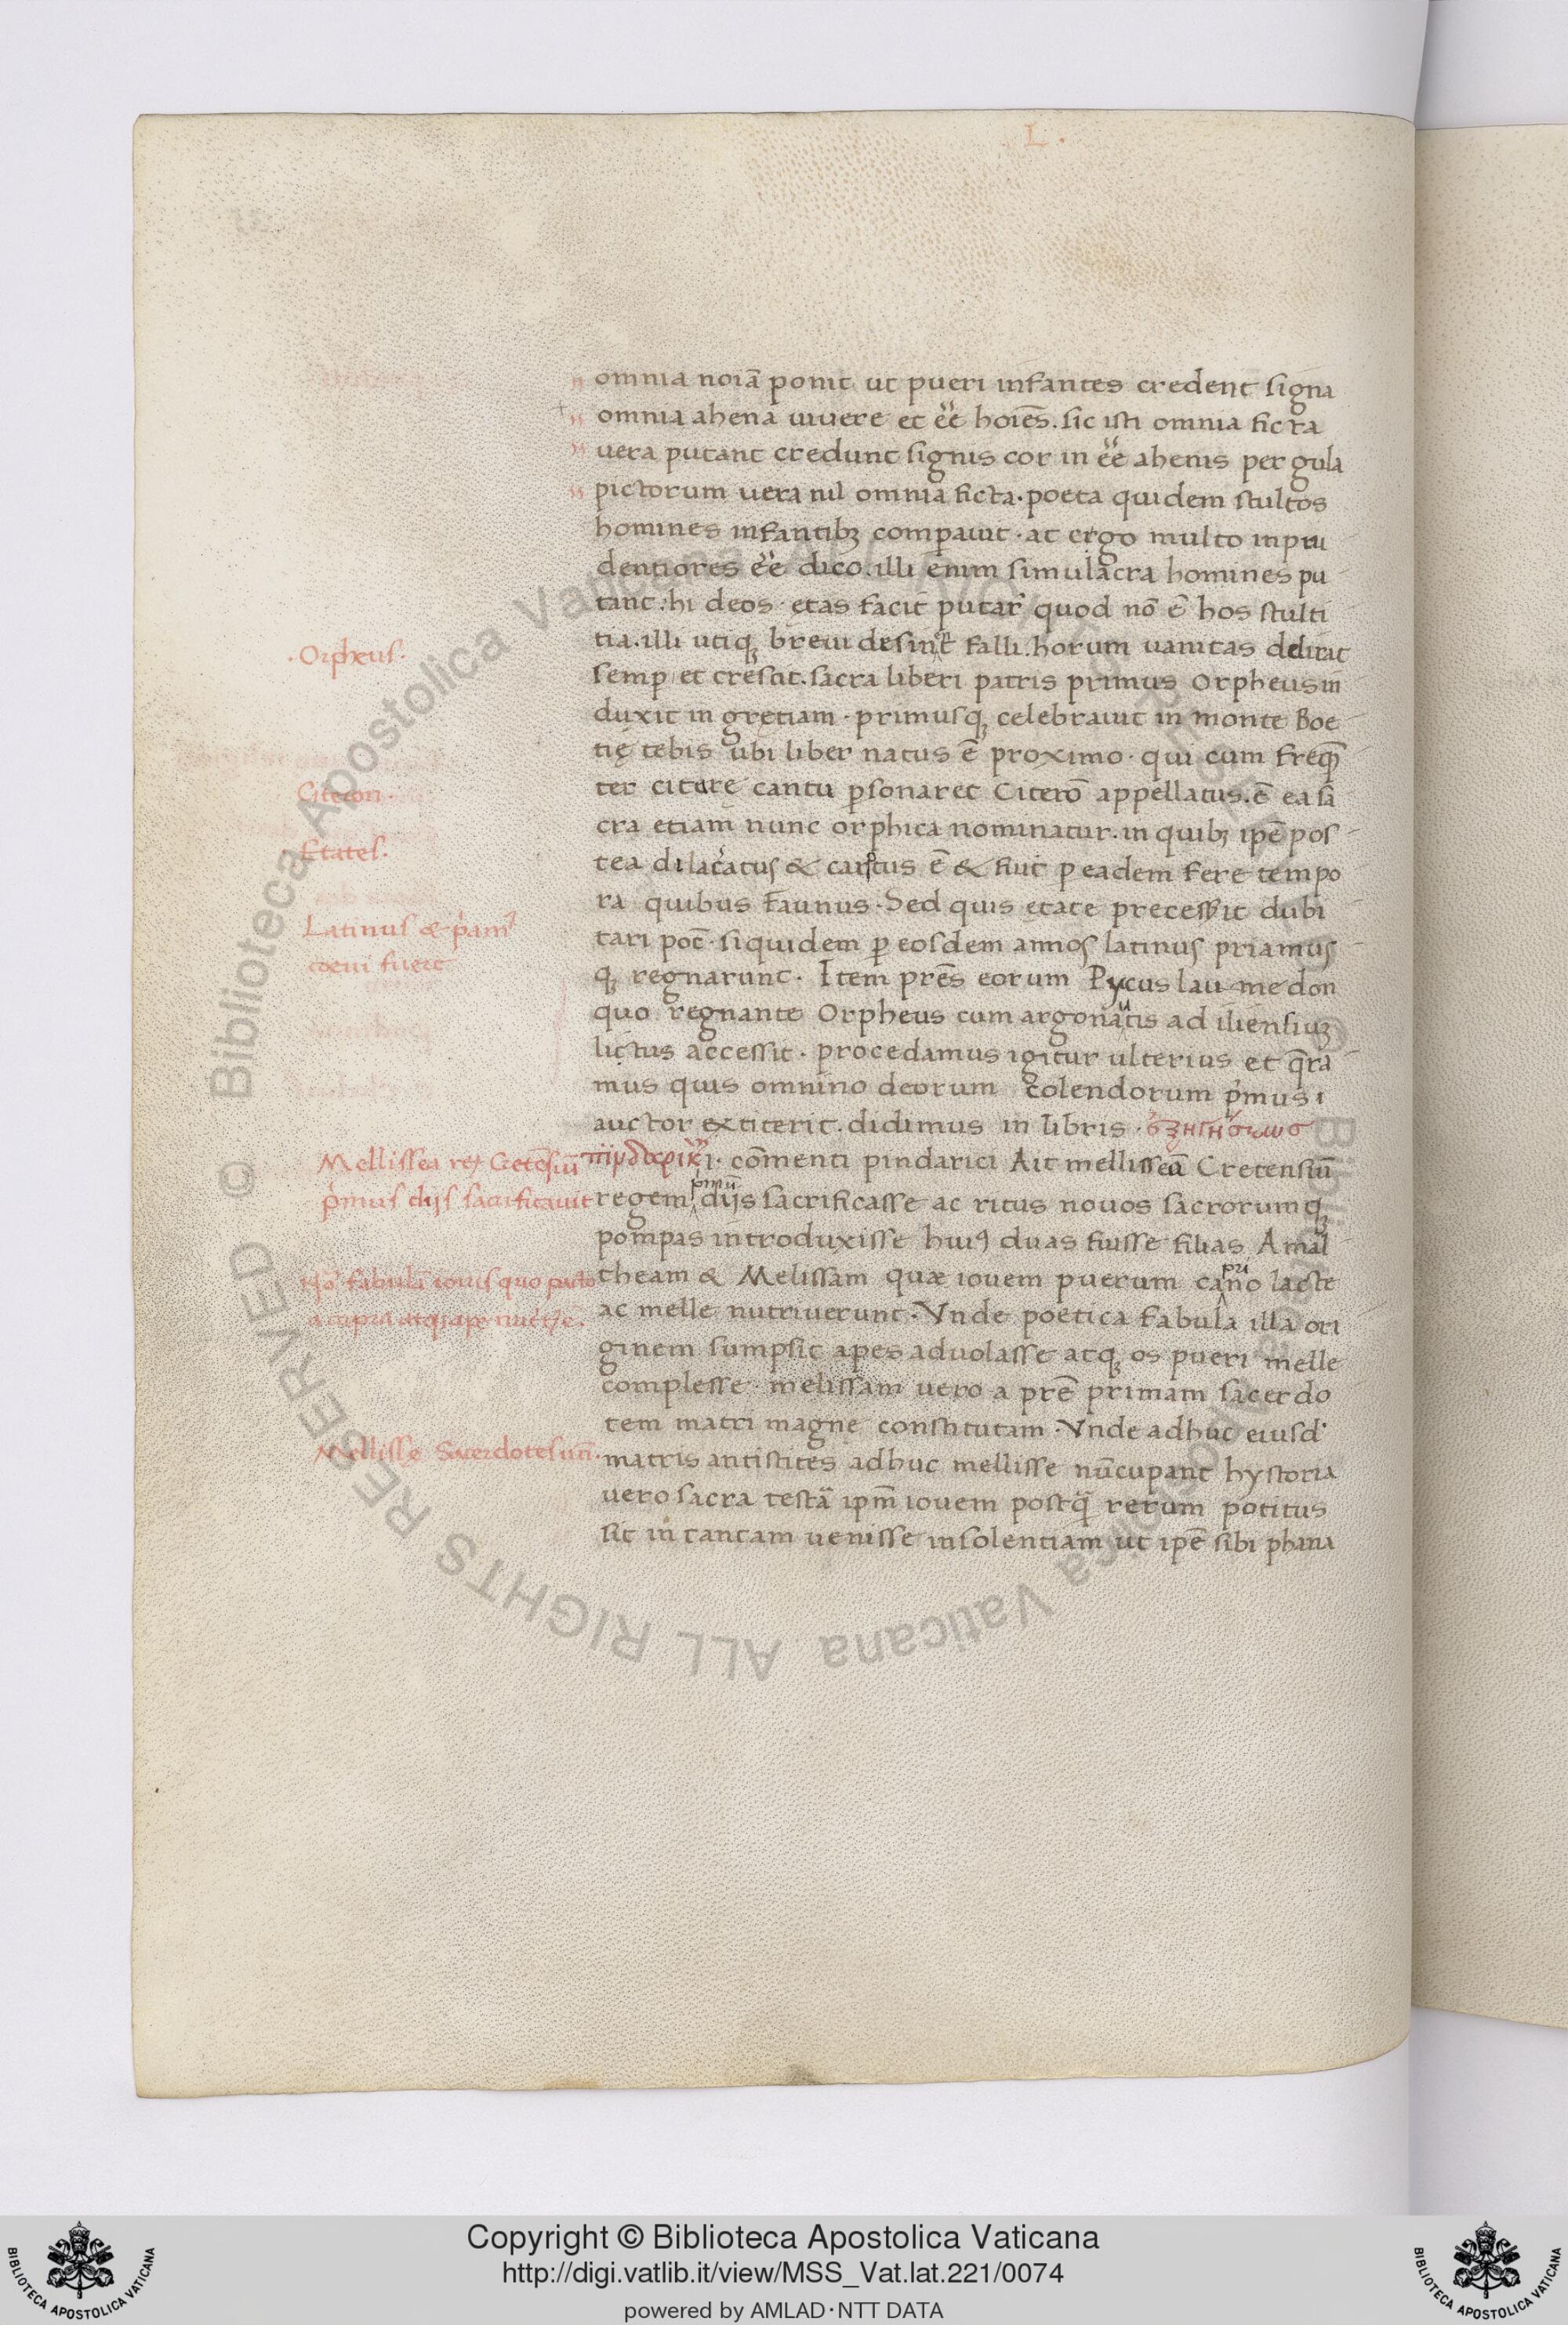 L.
omnia noīā ponit ut pueri infantes credent signa
omnia ahena vivere et eē̈ hoiēs. sic isti omnia ficta
vera putant credunt signis cor in eē̈ ahenis pergula
pictorum vera nil omnia ficta · poeta quidem stultos
homines infantibꝫ comꝑavit · at ergo multo inpru
dentiores eē̈ dico. illi enim simulacra homines pu
tant: hi deos · etas facit putar̃ quod nō ē hos stulti
tia. illi utiqꝫ brevi desinēt falli. horum vanitas delirat
semꝑ et crescit. sacra liberi patris primus Orpheus in
duxit in gretiam · primusqꝫ celebravit in monte Boe
tię tebis ubi liber natus ē proximo · qui cum freqē
ter citare cantu ꝑsonaret Citerō appellatus. ē ea sa
cra etiam nunc orphica nominatur. in quibꝫ ipē pos
tea dilacatus & carptus ē & fuit ꝑ eadem fere tempo
ra quibus faunus · Sed quis ętate precessit dubi
tari pot̄ · siquidem ꝑ eosdem annos latinus priamus
qꝫ regnarunt · Item prēs eorum Pycus laumedon
quo regnante Orpheus cum argonautis ad iliensiuꝫ
lictus accessit · procedamus igitur ulterius et q̄ra
mus quis omnino deorum colendorum pͥmus
auctor extiterit. didimus in libris · ἐξηγήσεωσ
πινδαρικῆσ i. cōmenti pindarici Ait melliss​eā Cretensiū
regem pͥmū dijs sacrificasse ac ritus novos sacrorumqꝫ
pompas introduxisse huiꝰ duas fuisse filias Amal
theam & Melissam quæ iovem puerum caprino lacte
ac melle nutriverunt · Unde poetica fabula illa ori
ginem sumpsit apes advolasse atqꝫ os pueri melle
complesse · melissam vero a prē primam sacerdo
tem matri magnę constitutam · Unde adhuc eiusd'
matris antistites adhuc mellisse nūcupant hystoria
vero sacra testā ipm̄ iovem postq̄ rerum potitus
sit in tantam venisse insolentiam ut ipē sibi phana
· Orpheus ·
Citeron ·
Etates ·
Latinus & pͥamꝰ
coevi fuerꝭt
Mellissea rex Cretēsiū
pͥmus dijs sacrificavit
fabulā iovis quo puto
a capra atqꝫ ape
Mellissę Sacerdotes un̄ ·
Copyright © Biblioteca Apostolica Vaticana
http://digi.vatlib.it/view/MSS_Vat.lat.221/0074
powered by AMLAD · NTT DATA
BIBLIOTECA APOSTOLICA VATICANA
BIBLIOTECA APOSTOLICA VATICANA
© Biblioteca Apostolica Vaticana ALL RIGHTS RESERVED